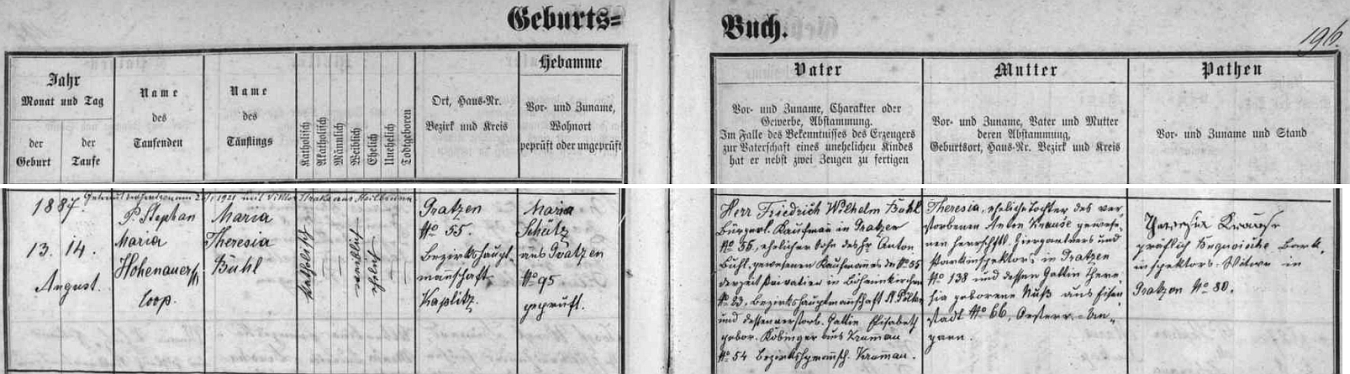 Geburts=
Buch.
196.
Jahr
Monat und Tag
der
Geburt
der
Taufe
Name
des
Taufenden
Name
des
Täuflings
Katholisch
Akatholisch
Männlich
Weiblich
Ehelich
Unehelich
Todtgeboren
Ort, Haus-Nr.
Bezirk und Kreis
Hebamme
Vor- und Zuname,
Wohnort
geprüft oder ungeprüft
Vater
Vor- und Zuname, Charakter oder
Gewerbe, Abstammung.
Im Falle des Bekenntnisses des Erzeugers
zur Vaterschaft eines unehelichen Kindes
hat er nebst zwei Zeugen zu fertigen
Mutter
Vor- und Zuname, Vater und Mutter
deren Abstammung,
Geburtsort, Haus-Nr. Bezirk und Kreis
Pathen
Vor- und Zuname und Stand
1887.
13. 14.
August.
P. Stephan
Maria
Hohenauer
Coop.
Maria
Theresia
Buhl
katholisch
weiblich
ehelich
Gratzen
No 55.
Bezirkshaupt-
mannschaft
Kaplitz
Maria
Schütz
aus Gratzen
No 95
geprüft.
Herr Friedrich Wilhelm Buhl
bürgerl. Kaufmann in Gratzen
No 55, ehelicher Sohn des Hr. Anton
Buhl, gewesenen Kaufmannes No 55
derzeit Privatier in
No 23, Bezirkshauptmannschaft
und dessen verstorb. Gattin Elisabeth
gebor. aus Kruman
No 54 Bezirkshptmsch. Kruman.
Theresia, eheliche Tochter des ver-
storbenen Anton Krause gewese-
nen herrschftl. Ziergärtners und
Parkinspektors in Gratzen
No 138 und dessen Gattin There-
sia geborene aus Eisen
stadt No 66, Oesterr. Un-
garn.
Theresia Krause
gräflich Buquoische Park-
inspektors-Witwe in
Gratzen No 80.